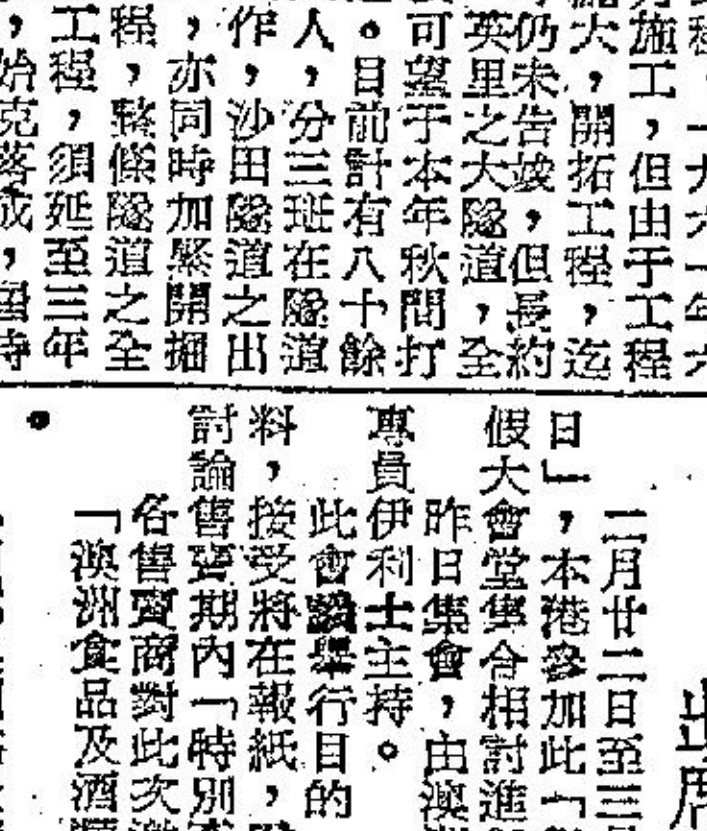 程,一九六一年六
施工,但由于工程
大,開拓工程,迄
仍未告竣,但長約
英里之大隧道,全
可望于本年秋間打
。目前計有八十餘
人,分三班在隧道
作,沙田隧道之出
,亦同時加緊開掘
程,整條隧道之全
工程,須延至三年
,始克落成,屆時
出席
二月廿二日至三月
日」,本港參加此「
假大會堂集合相討進
昨日集會,由澳
專員伊利士主持。
此會議舉行目的
料,接受將在報紙,
討論售賣期內「特別
各售賣商對此次
「澳洲食品及酒
。